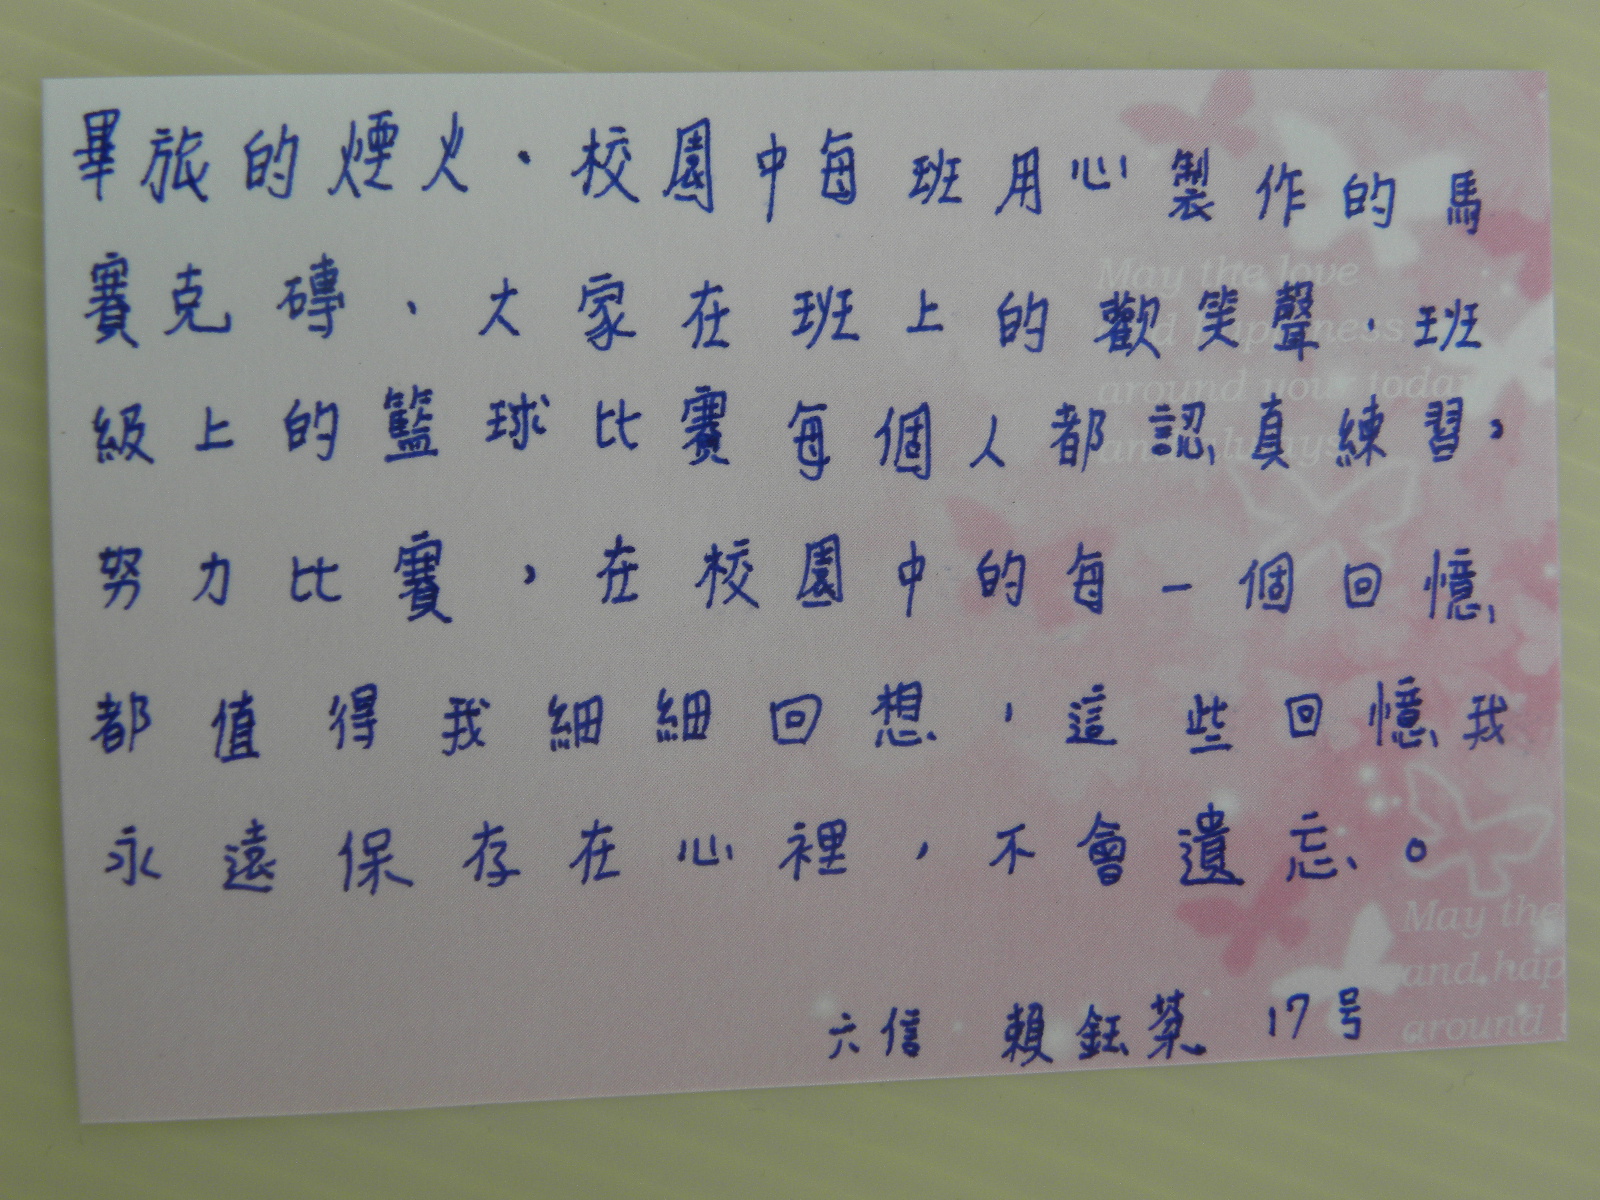 畢旅的煙火、校園中每班用心製作的馬
賽克磚、大家在班上的歡笑聲、班
級上的籃球比賽每個人都認真練習，
努力比賽，在校園中的每一個回憶
都值得我細細回想，這些回憶我
永遠保存在心裡，不會遺忘。
六信 賴鈺棻 17号
May the love
and happiness
around your today
and always
May the
and hap
around